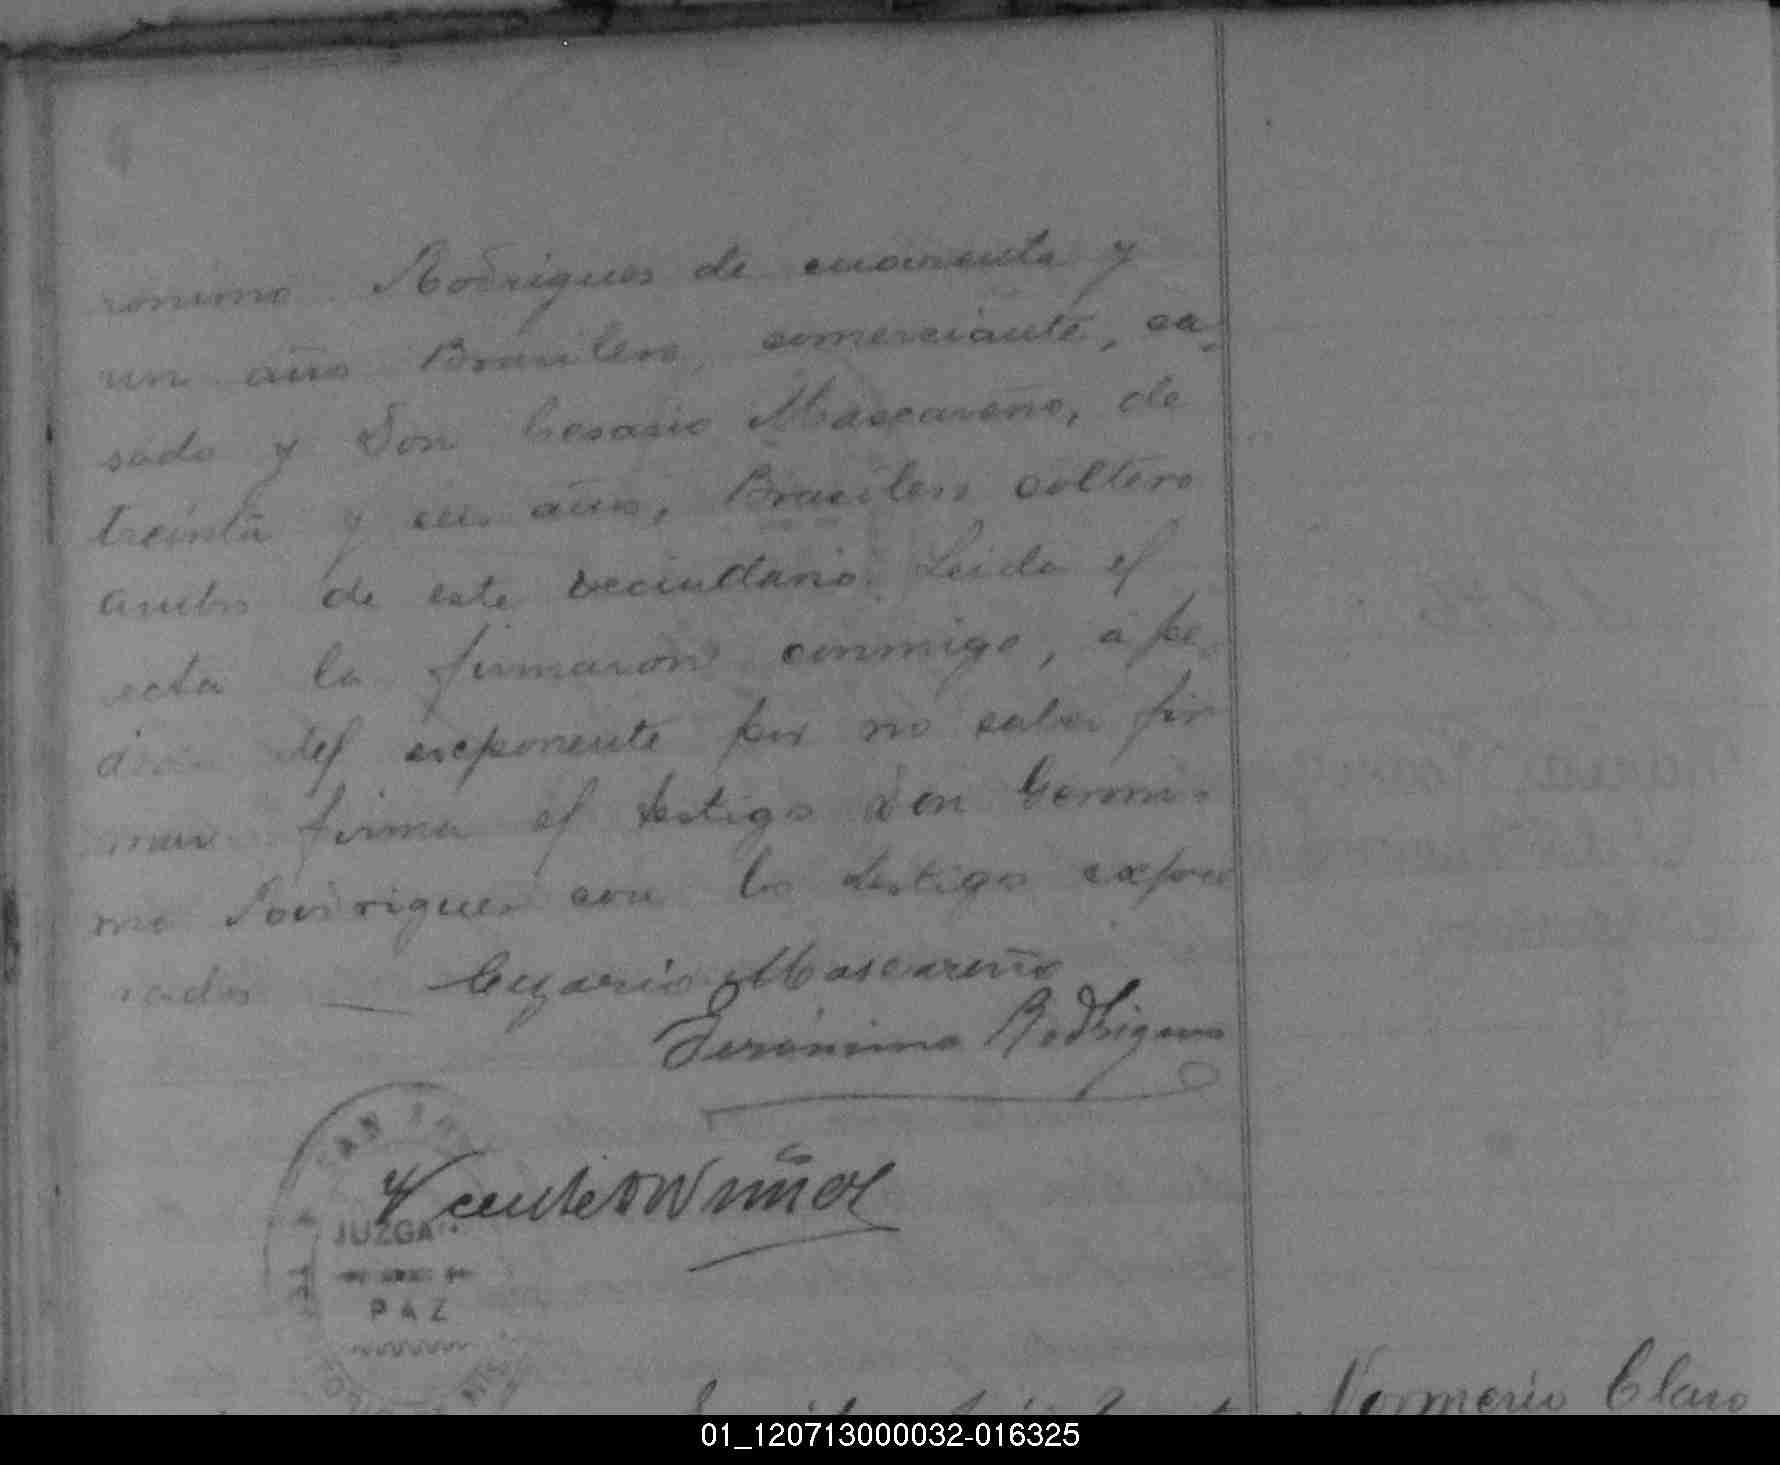 ronimo Rodrigues de cuarenta y
un años Brasilero, comerciante, ca-
sado y Don Cesario Mascareño, de
treinta y un años, Brasilero soltero
ambos de este vecindario. Leida el
acta la firmaron conmigo, a pe-
del exponente por no saber fir
mar firma el testigo Don Geroni-
mo Rodrigues con los testigos expre
sados — Cezario Mascareño
Jeronimo Rodrigues
Vicente Nuñez
JUZGA
PAZ
Normerio Claro
01_120713000032-016325